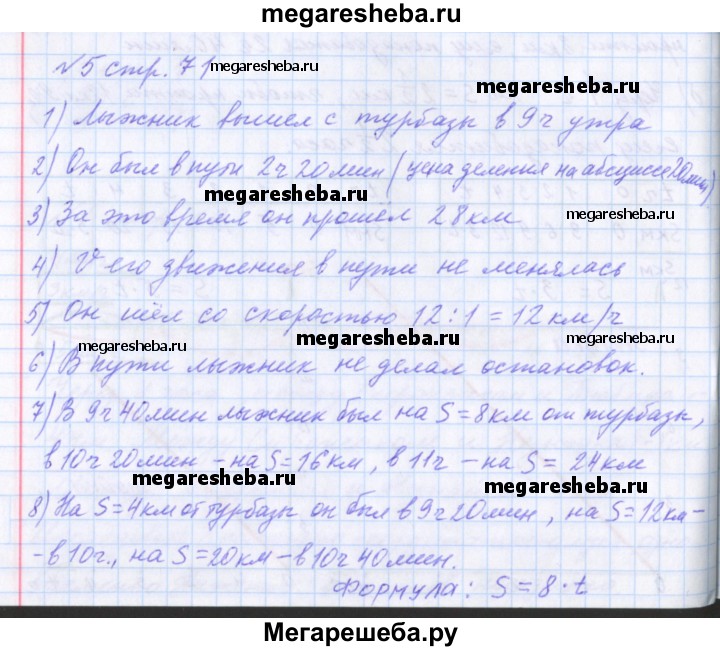 megaresheba.ru
№5 стр. 71
megaresheba.ru
megaresheba.ru
1) Лыжник вышел с турбазы в 9ч утра
2) Он был в пути 2ч 20мин (цена деления на абсциссе 20мин)
megaresheba.ru
3) За это время он прошёл 28км
megaresheba.ru
4) V его движения в пути не менялась
5) Он шёл со скоростью 12:1=12км/ч
megaresheba.ru
megaresheba.ru
megaresheba.ru
6) В пути лыжник не делал остановок.
7) В 9ч 40мин лыжник был на S=8км от турбазы,
в 10ч 20мин - на S=16км, в 11ч - на S= 24км
megaresheba.ru
megaresheba.ru
8) На S=4км от турбазы он был в 9ч 20мин, на S=12км-
-в 10ч., на S=20км-в 10ч 40мин.
megaresheba.ru
Формула: S=8·t
Мегарешеба.ру